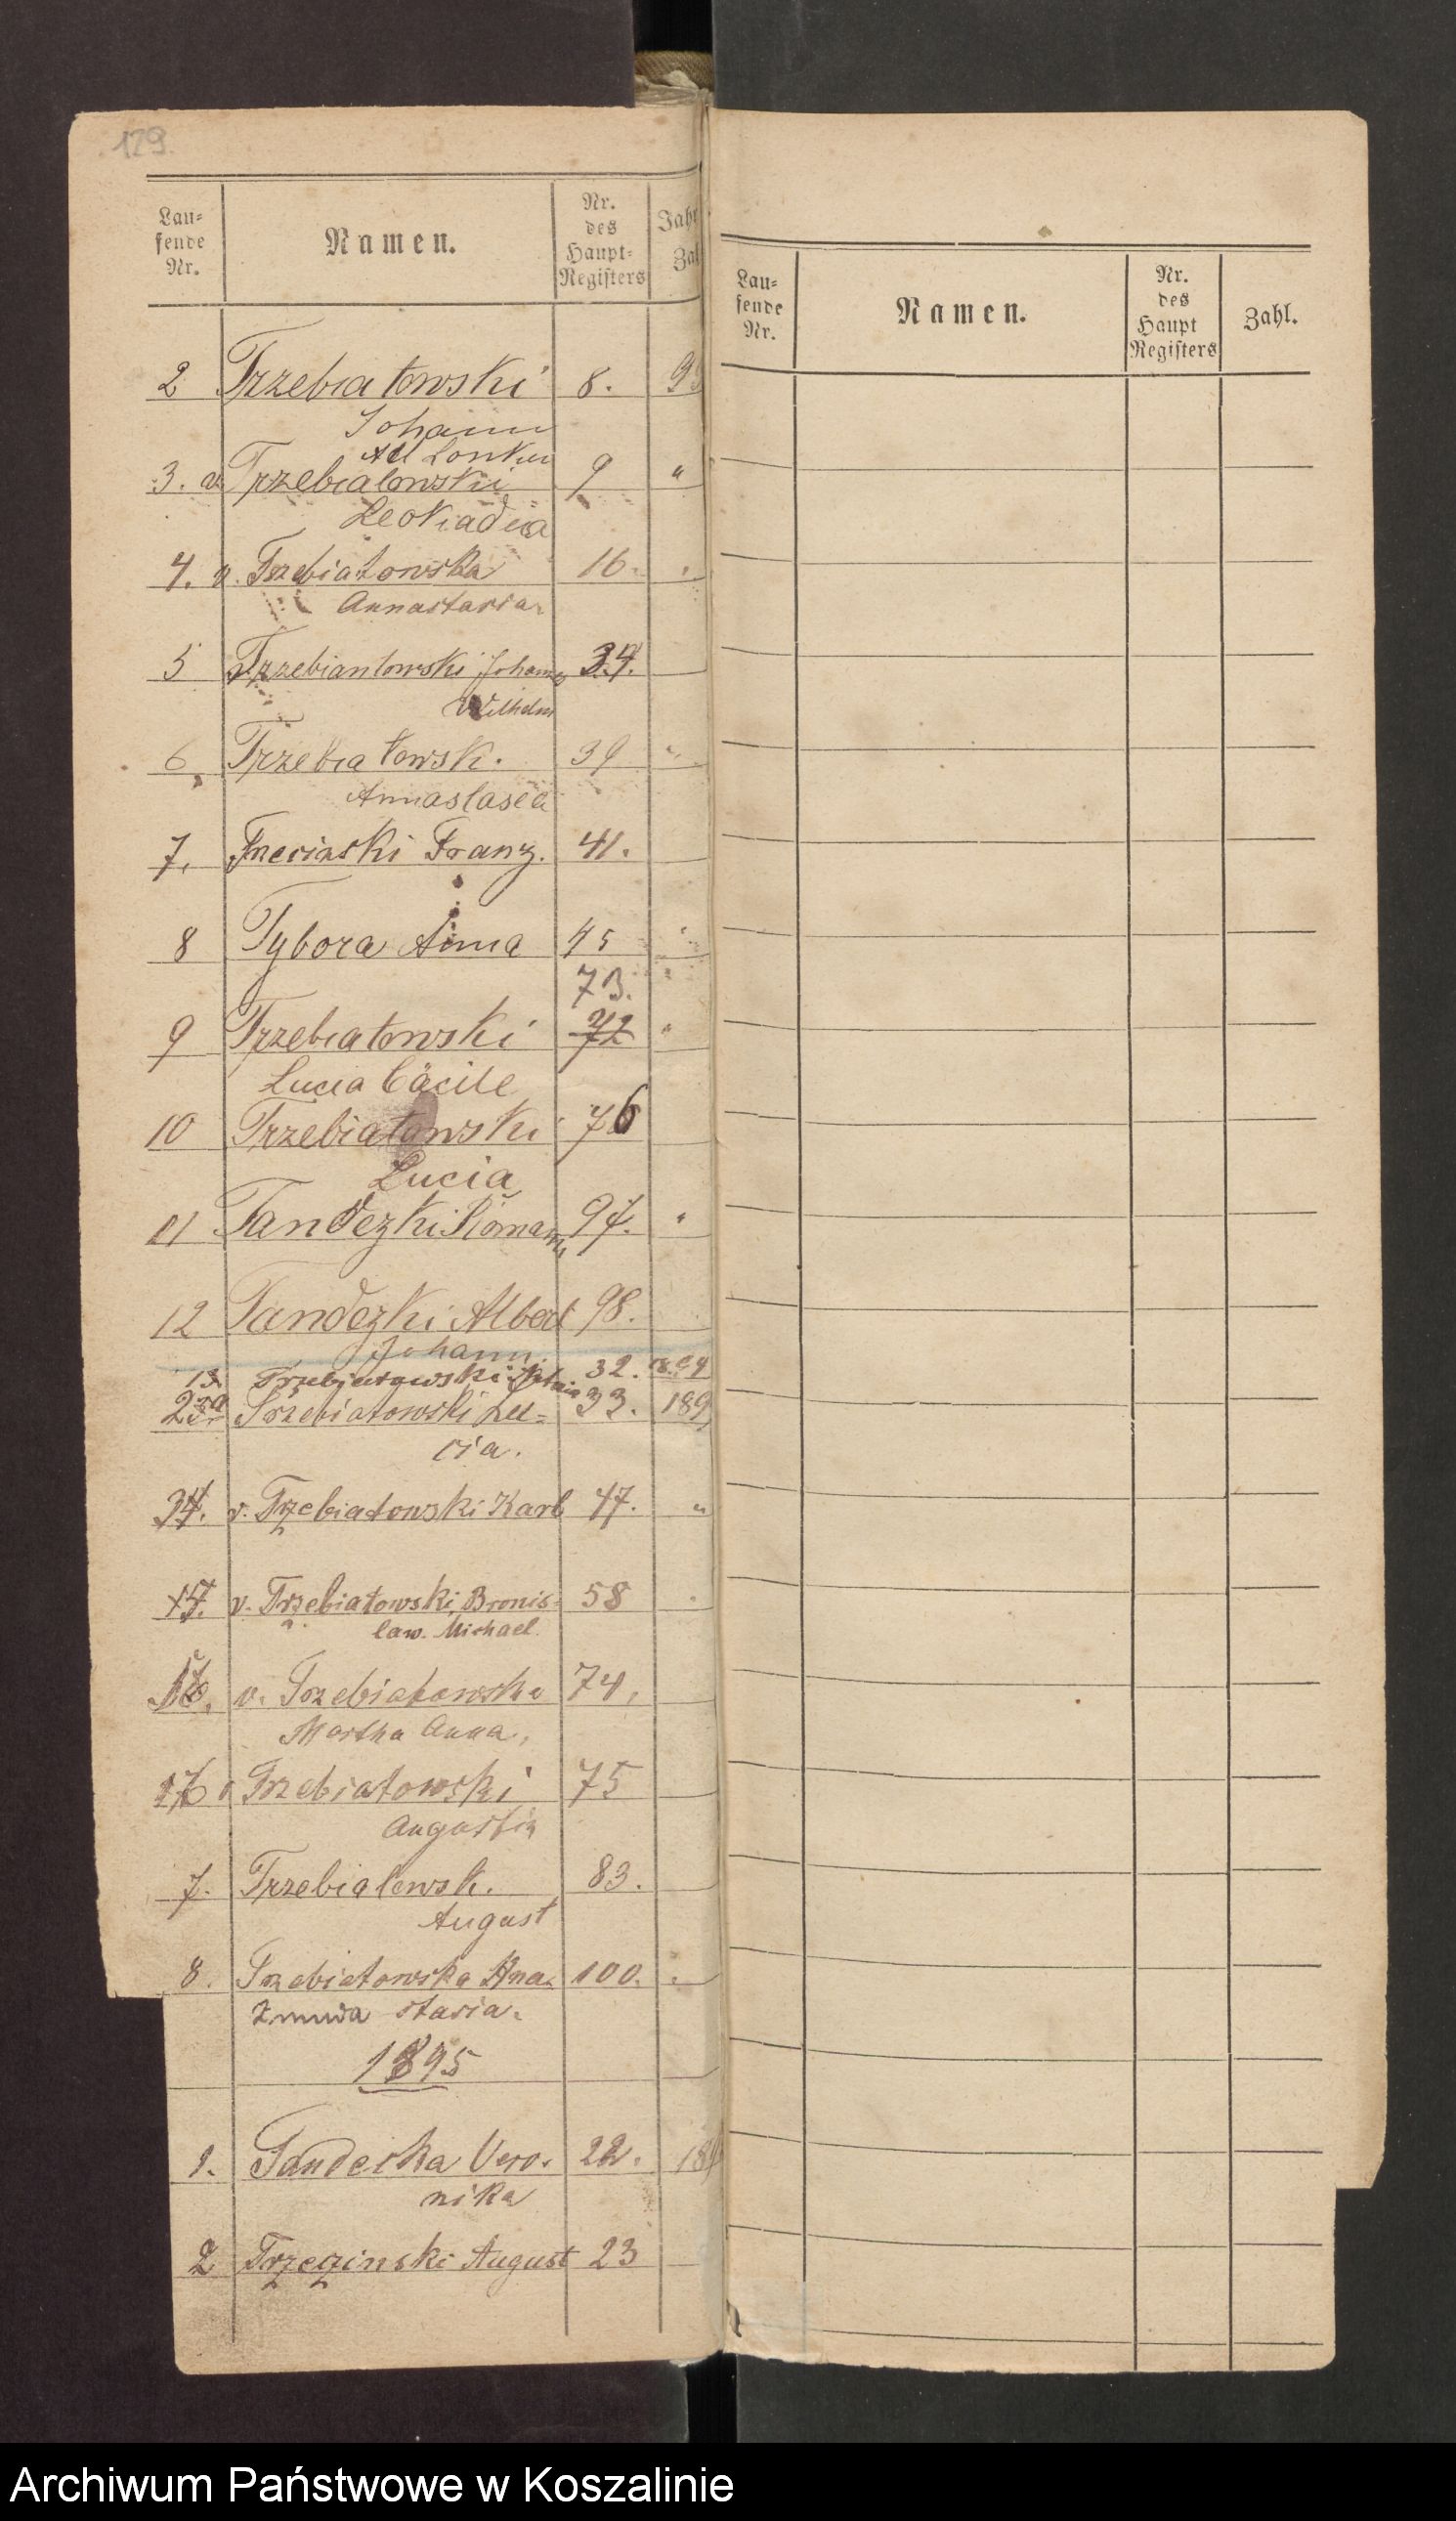 129.
Lau-
fende
Nr.
Namen.
Nr.
des
Haupt-
Registers
Jahr
Zahl
2 Trzebiatowski 8. 93
Johann
3. v. Trzebiatowski 9 "
Leokadia
4. v. Trzebiatowska 16. "
Annastasia
5 v. Trzebiantowski Johann 34.
Wilhelm
6. Trzebiatowsk. 39 "
Annastasia
7. Franz. 41.
8 Tybora Anna 45 "
73. "
9 Trzebiatowski 72 "
Lucia Cäcile
10 Trzebiatowski 76
Lucia
11 Tandezki Roman 97. "
12 Tandezki Albert 98.
Johann
13. Trzebiatowski 32. 1894
Trzebiatowski Lu- 33. 189
cia.
v. Trzebiatowski Karl 47. "
v. Trzebiatowski Bronis- 58 "
law. Michael.
v. Trzebiatowska 74.
Martha Anna.
Trzebiatowski 75
Augustin
7. Trzebiatowsk. 83.
August
8. Trzebiatowska Ana- 100. "
Zmuda stasia.
1895
1. Tandecka Vero- 22. 189
nika
2 Trzezinski August 23
Lau-
fende
Nr.
Namen.
Nr.
des
Haupt
Registers
Zahl.
Archiwum Państwowe w Koszalinie